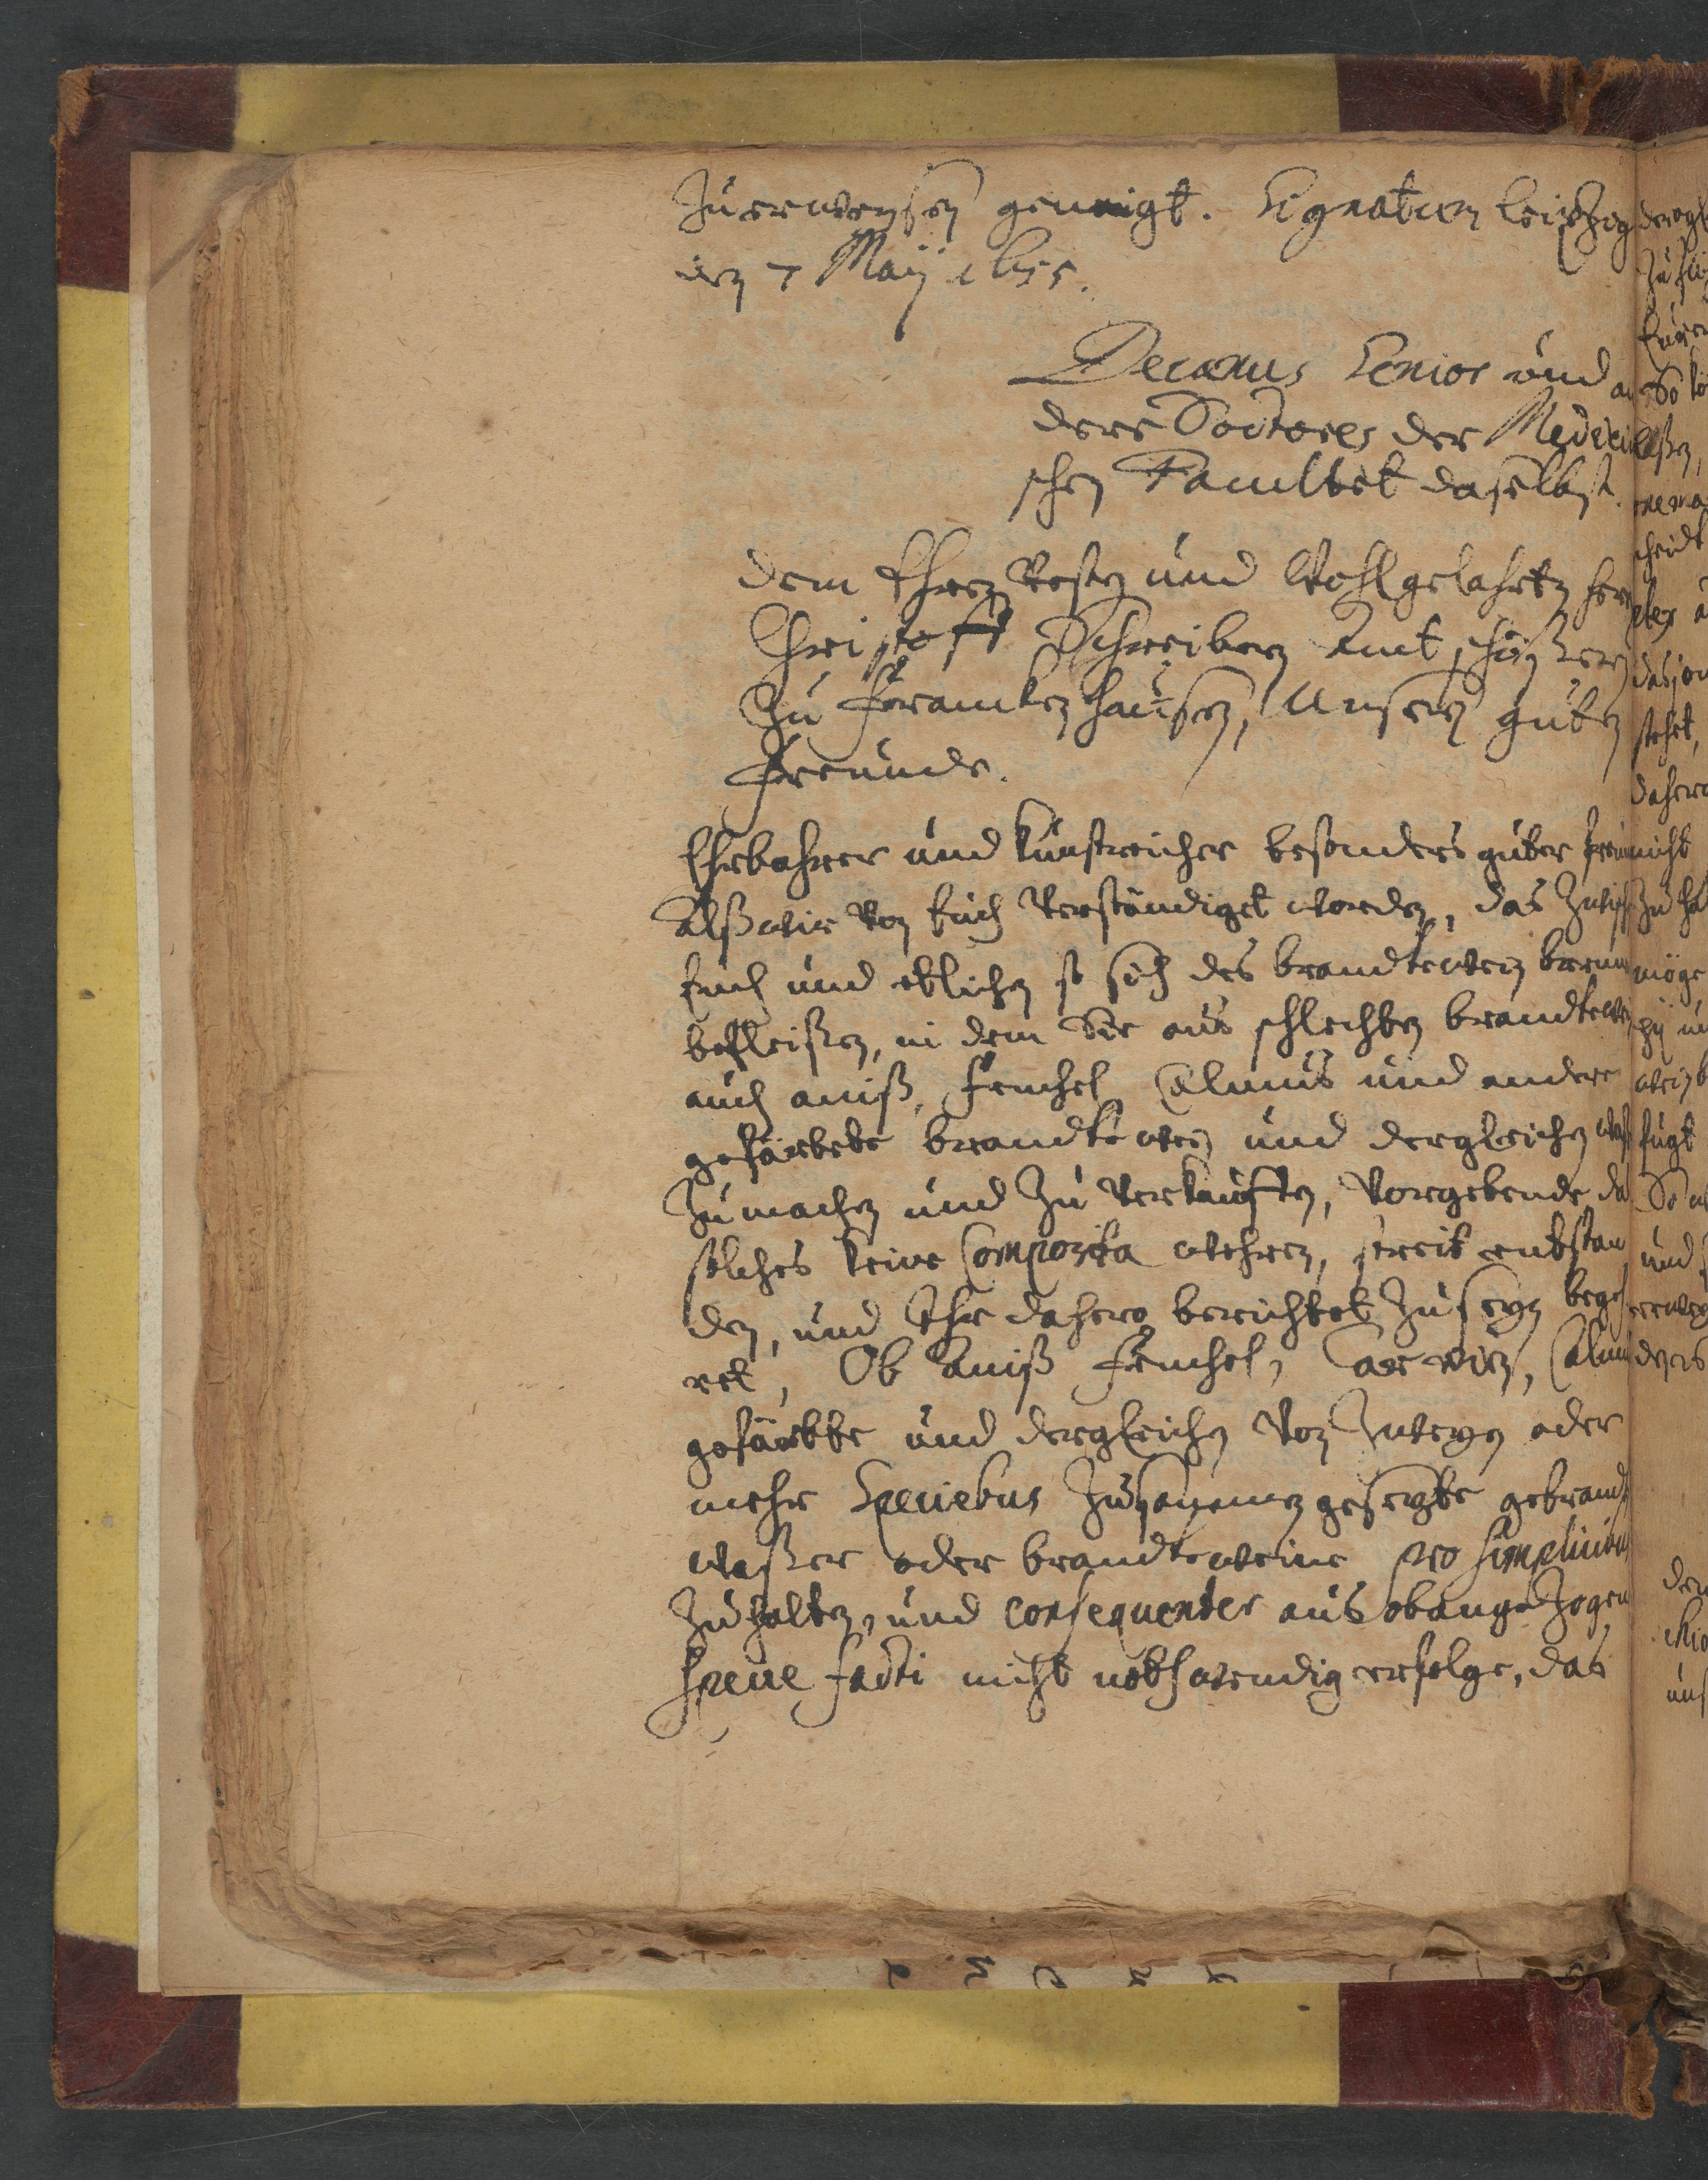 Zuerweysen geneigt. Signatum Leipzigk
den 7 Maÿ 1655.
Decanus Senior und an
dere Doctores der Medicini
schen Facultet daselbst.
Dem Ehren Vesten und Wohlgelahrten Herrn
Christoff Schreibern Amt schößern
Zu Franckenhausen, Unsern guten
Freunde.
Ehrbahrer und Kunstreicher besonders guter Freund
Alß wir von Euch Verständiget worden, das Zwisch
Euch und etlichen so sich des brandtewein brenn
befleißen, in dem Sie aus schlechten brandtewein
auch aniß, Fenchel Calmus und andere
gefärbete brandtewein und dergleichen
Zu machen und Zu Verkauffen, Vorgebende da
solches keine Composita wehren, streit entstan
den, und Ihr dahero berichtet Zu seyn begeh
ret, Ob Aniß Fenchel, Calmus
gefärbte und dergleichen von Zweyen oder
mehr Speciebus Zusammen gesetzte gebrandte
waßer oder brandteweine pro simplicibus
Zuhalten, und consequenter aus obangeZogen
specie facti nicht nothwendig erfolge, das